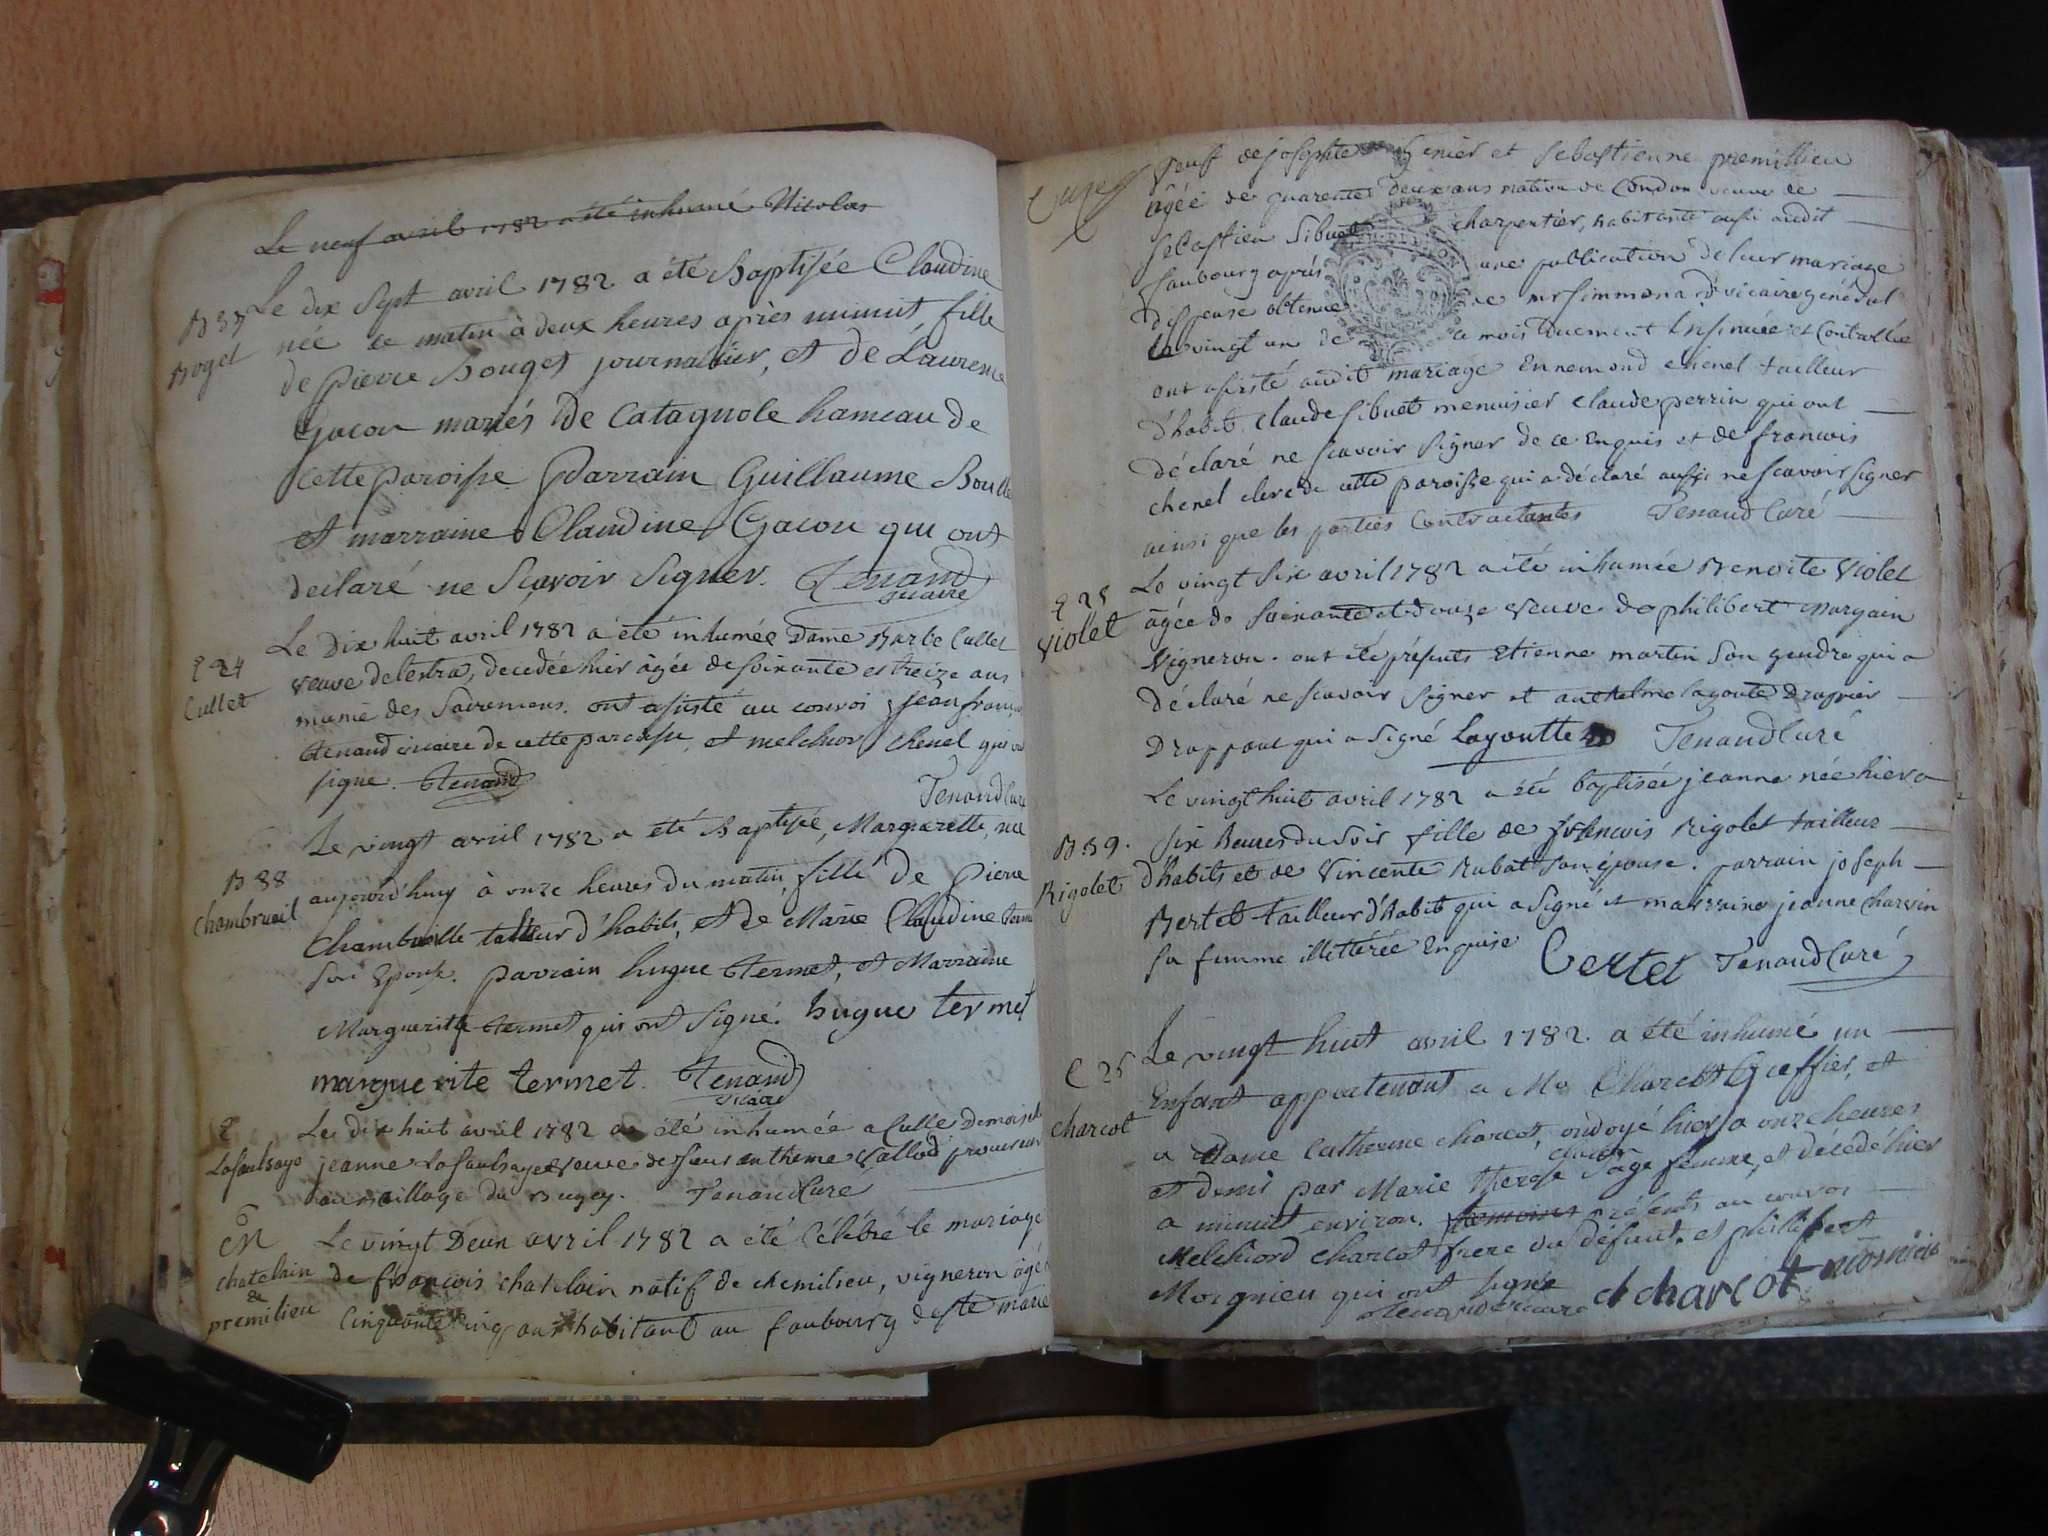 Le neuf avril 1782 a été inhumé Nicolas
B 37 Le dix sept avril 1782 a été baptisée Claudine
née ce matin à deux heures après minuit fille
Boget
de Pierre Bouget journalier, et de Laurence
Gacon mariés de Catagnole hameau de
cette paroisse Parrain Guillaume
et marraine Claudine Gacon qui ont
declaré ne Scavoir Signer. Tenand
vicaire
Le Dix huit avril 1782 a été inhumée Dame Cullet
S 24
Cullet
veuve delestra, decedée hier âgée de soixante et treize ans
munie des Sacremens. ont asisté au convoi jean françois
tenand vicaire de cette paroisse, et melchior chenel qui ont
signe. Tenand
Tenand Curé
Le vingt avril 1782 a été Baptisée, Marguerette, née
B 38
Chambrueil
aujourd'huy à onze heures du matin, fille de Pierre
tailleur d'habits, et de Marie Claudine
Son Epouse. parrain hugue termet, et Marraine
Marguerite termet qui ont Signé. hugue termet
marguerite termet. Tenand
vicaire
S
Le dix huit avril 1782 a été inhumée a Culle Demoiselle
Lafaulsaye
jeanne Lafaulsaye veuve de sieur anthelme vallod procureur
au baillage du Bugey. Tenand Curé
M
chatelain
&
premilieu
Le vingt Deux avril 1782 a été Célébré le mariage
de françois chatelain natif de chemilieu, vigneron âgé
Cinquante cinq ans habitant au faubourg de ste marie
veuf de josephte et Sebastienne premillieu
âgée de quarente deux ans native de Condon veuve de
Sebastien Sibuet charpentier, habitante aussi audit
faubourg après une publication de leur mariage
dispense obtenue de mr Simmonard vicaire général
le vingt un de ce mois duement Insinuée et Controllée
ont asisté audit mariage Ennemond chenel tailleur
d'habit Claude Sibuet menuisier Claude perrin qui ont
déclaré ne scavoir signer de ce Enquis et de françois
chenel clerc de cette paroisse qui a déclaré aussi ne scavoir signer
ainsi que les parties Contractantes Tenand Curé
Le vingt Six avril 1782 a été inhumée Benoite Violet
S 25
Violet
âgée de Soixante et douze veuve de philibert
Vigneron. ont été présents Etienne martin Son gendre qui a
déclaré ne scavoir Signer et anthelme layoutte Drapier
Drappant qui a Signé Layoutte Tenand Curé
Le vingt huit avril 1782 a été baptisée jeanne née hier a
B 39.
Rigolet
Six heures du soir fille de françois Rigolet tailleur
d'habits et de Vincente Rubat son épouse. parrain joseph
Bertet tailleur d'habit qui a Signé et marraine jeanne Charvin
sa femme illettérée Enquise Bertet Tenand Curé
Le vingt huit avril 1782 a été inhumé un
S 25
Charcot
Enfant appartenant a Me Charcot Greffier, et
a Dame Catherine Charcot, ondoyé hier a onze heures
et demi par Marie Therese Sage femme, et décédé hier
a minuit environ. présents au convoi
Melchiord Charcot frere du défunt, et philibert
Mornieu qui ont signé
Tenand vicaire charcot mornieu